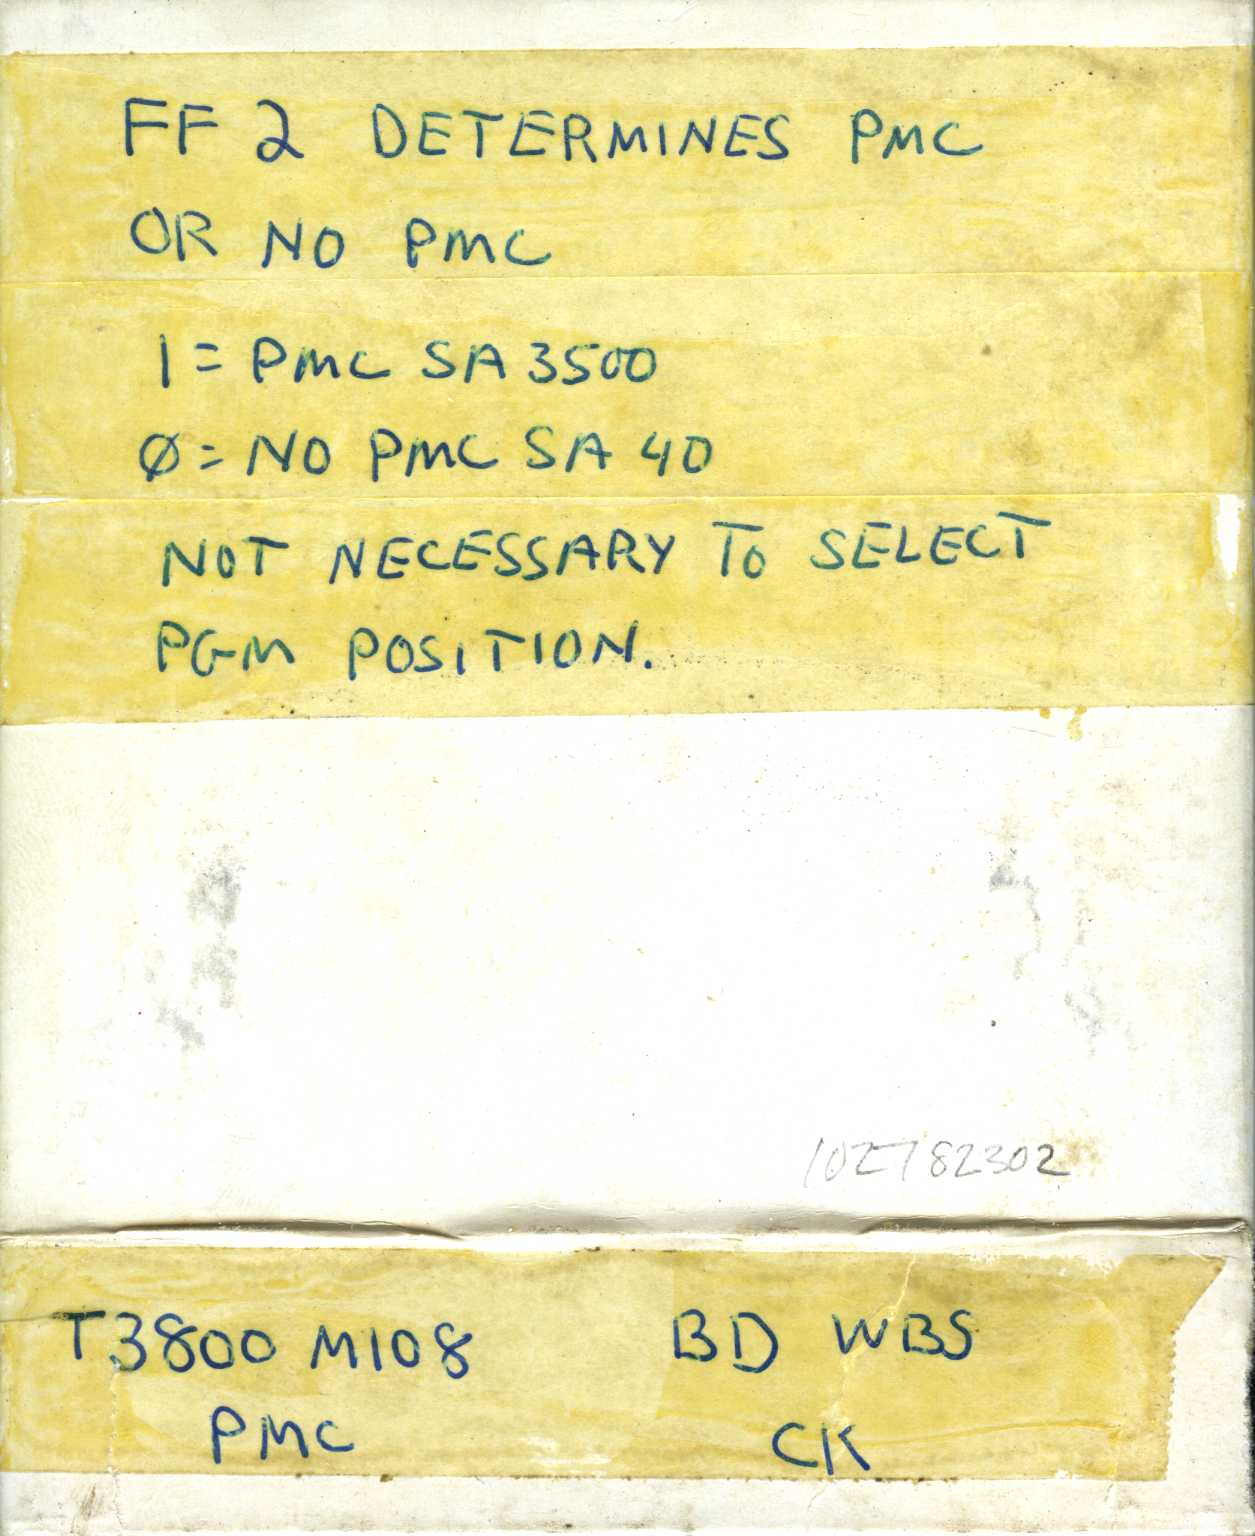 FF 2 DETERMINES PMC
OR NO PMC
1 = PMC SA 3500
Ø = NO PMC SA 40
NOT NECESSARY TO SELECT
PGM POSITION.
102782302
T3800 M108 BD WBS
PMC CK